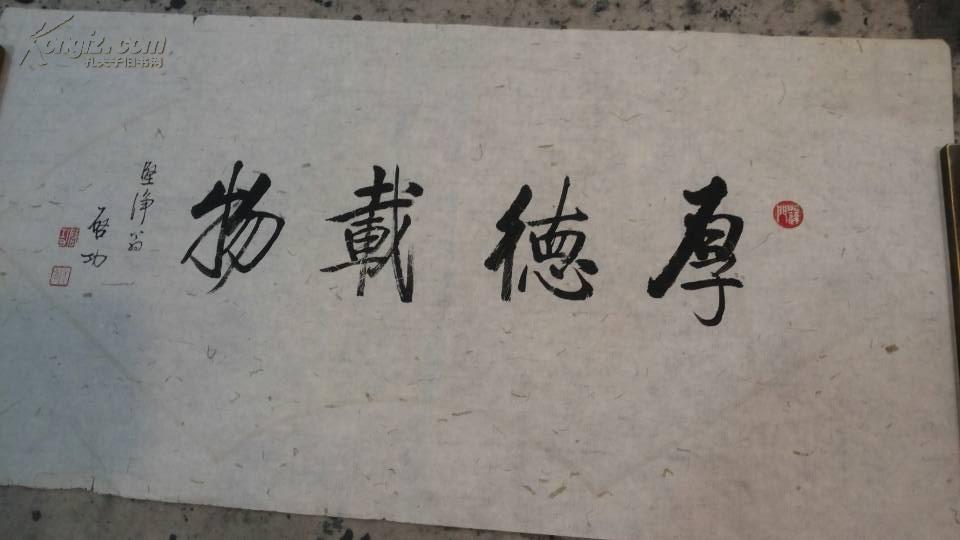 厚德載物
堅淨翁
啓功
Kongfz.com
孔夫子旧书网